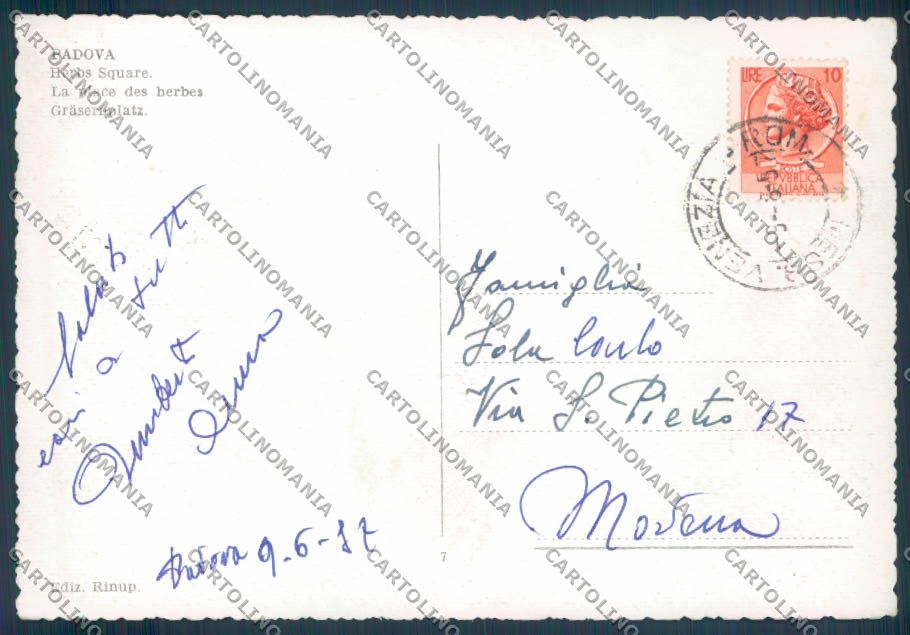 PADOVA
Herbs Square.
La place des herbes
Gräsernplatz.
LIRE 10
POSTE
REPUBBLICA
ITALIANA
VENEZIA
ROMA
Saluti
cari a tutti
Umberto
Anna
Padova 9-6-57
Famiglia
Sola Carlo
Via S. Pietro 17
Modena
7
Ediz. Rinup.
CARTOLINOMANIA